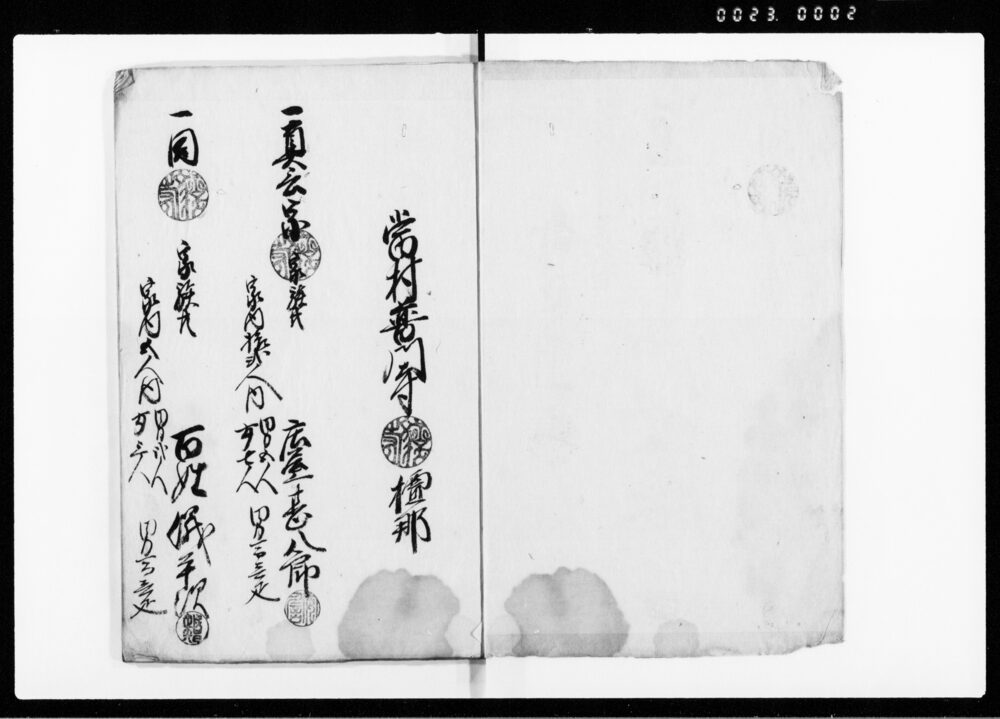 0023. 0002
當村普門寺 檀那
一真言宗 家族共 庄屋甚八郎
家内拾弐人内 男五人 女七人 疋
一同 家族共 百姓儀平次
家内五人内 男弐人 女三人 疋